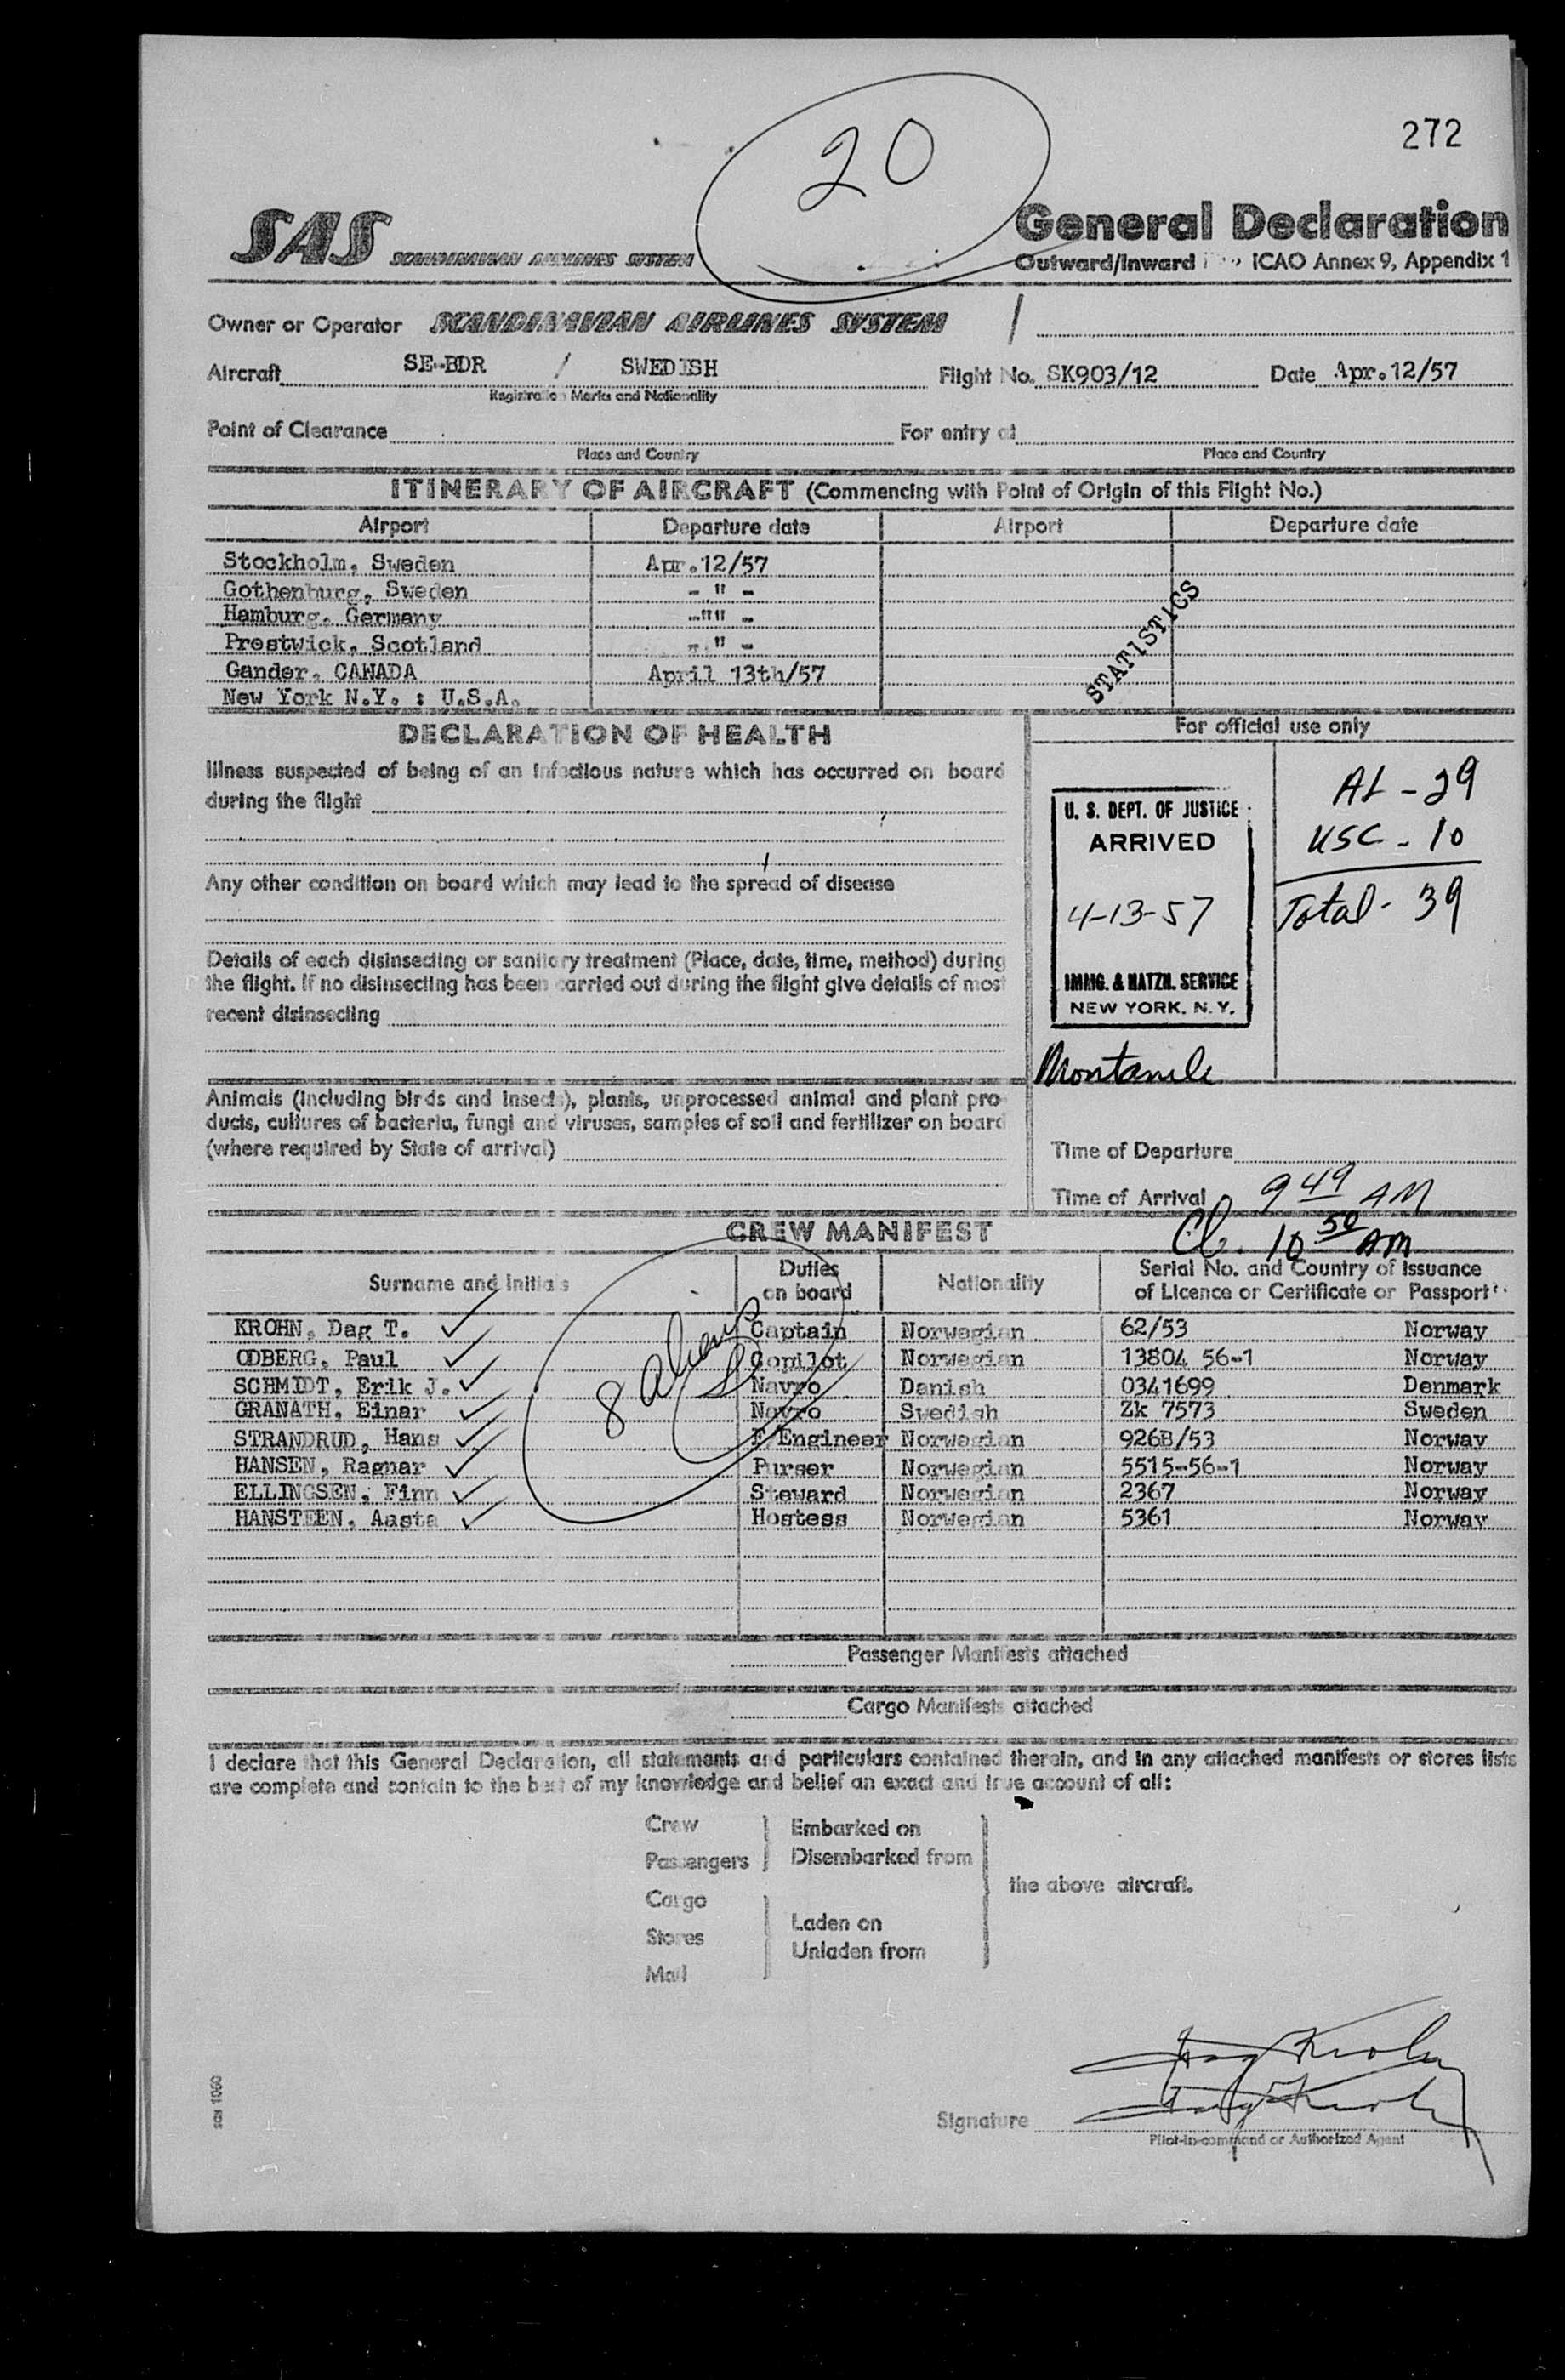 20
272
SAS SCANDINAVIAN AIRLINES SYSTEM
General Declaration
Outward/Inward ICAO Annex 9, Appendix 1
Owner or Operator SCANDINAVIAN AIRLINES SYSTEM /
Aircraft SE-BDR / SWEDISH Flight No. SK903/12 Date Apr.12/57
Registration Marks and Nationality
Point of Clearance For entry at
Place and Country Place and Country
ITINERARY OF AIRCRAFT (Commencing with Point of Origin of this Flight No.)
Airport Departure date Airport Departure date
Stockholm, Sweden Apr.12/57
Gothenburg, Sweden - " -
Hamburg, Germany -"" -
Prestwick, Scotland - " -
Gander, CANADA April 13th/57
New York N.Y. : U.S.A.
STATISTICS
DECLARATION OF HEALTH
Illness suspected of being of an infectious nature which has occurred on board
during the flight
Any other condition on board which may lead to the spread of disease
Details of each disinsecting or sanitary treatment (Place, date, time, method) during
the flight. If no disinsecting has been carried out during the flight give details of most
recent disinsecting
Animals (including birds and insects), plants, unprocessed animal and plant pro-
ducts, cultures of bacteria, fungi and viruses, samples of soil and fertilizer on board
(where required by State of arrival)
For official use only
U. S. DEPT. OF JUSTICE
ARRIVED
4-13-57
IMMG. & NATZN. SERVICE
NEW YORK, N. Y.
AL - 29
USC - 10
Total - 39
Time of Departure
Time of Arrival 9 49 AM
Cl. 10 50 AM
CREW MANIFEST
Surname and initials Duties on board Nationality Serial No. and Country of Issuance
of Licence or Certificate or Passport
8 aliens
KROHN, Dag T. Captain Norwegian 62/53 Norway
ODBERG, Paul Copilot Norwegian 13804 56-1 Norway
SCHMIDT, Erik J. Navro Danish 0341699 Denmark
GRANATH, Einar Navro Swedish Zk 7573 Sweden
STRANDRUD, Hans F/Engineer Norwegian 926B/53 Norway
HANSEN, Ragnar Purser Norwegian 5515-56-1 Norway
ELLINGSEN, Finn Steward Norwegian 2367 Norway
HANSTEEN, Aasta Hostess Norwegian 5361 Norway
Passenger Manifests attached
Cargo Manifests attached
I declare that this General Declaration, all statements and particulars contained therein, and in any attached manifests or stores lists
are complete and contain to the best of my knowledge and belief an exact and true account of all:
Crew Embarked on
Passengers Disembarked from
the above aircraft.
Cargo
Stores Laden on
Unladen from
Mail
Dag Krohn
Signature Dag Krohn
Pilot-in-command or Authorized Agent
SAS 1060